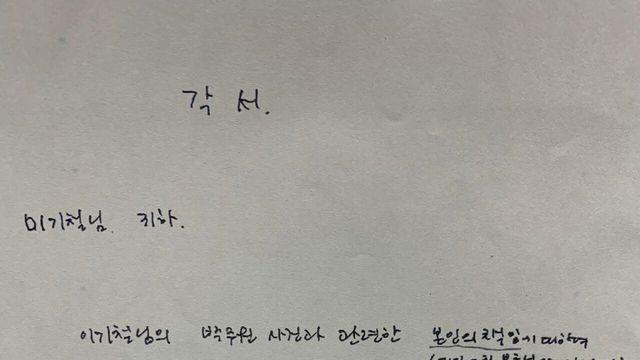 각 서.
이기철님. 귀하.
이기철님의 박주원 사건과 관련한 본인의 책임에 대하여